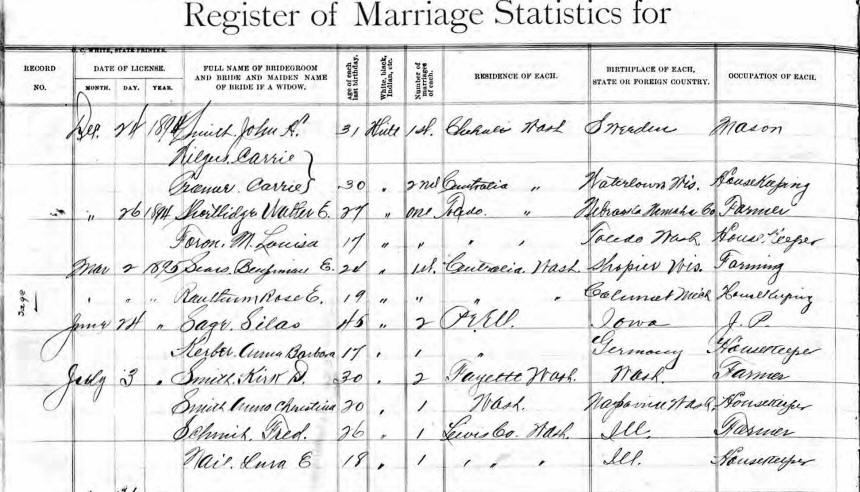 Register of Marriage Statistics for
O. C. WHITE, STATE PRINTER.
RECORD NO. DATE OF LICENSE. MONTH. DAY. YEAR. FULL NAME OF BRIDEGROOM AND BRIDE AND MAIDEN NAME OF BRIDE IF A WIDOW. Age of each last birthday. White, black, Indian, etc. Number of marriages of each. RESIDENCE OF EACH. BIRTHPLACE OF EACH, STATE OR FOREIGN COUNTRY. OCCUPATION OF EACH.
Dec. 24 1894 Smith. John A. 31 1st. Chehalis Wash Sweeden Mason
Carrie }
Carrie } 30 " 2nd Centralia " Watertown Wis. Housekeeping
" 26 1894 Shortlidge Walter E. 27 " one Nebraska Nemaha Co Farmer
M. Louisa 17 " " " " Toledo Wash House Keeper
Mar 2 1895 Sears. E. " 1st. Centralia Wash. Shopier Wis. Farming
" " " Rose E. 19 " " " " Calumet Mich Housekeeping
June 24 " Sage. Silas 45 " 2 Pe Ell. Iowa J. P.
Sage
Kerber. Anna Barbara 17 " 1 " Germany Housekeeper
July 3 " Smith. Kirk D. 30 " 2 Fayette Wash. Wash. Farmer
Smith Anna Christina 20 " 1 Wash. Napavine Wash. Housekeeper
Schmit. Fred. 26 " 1 Lewis Co. Wash. Ill. Farmer
E 18 " 1 " " " Ill. Housekeeper